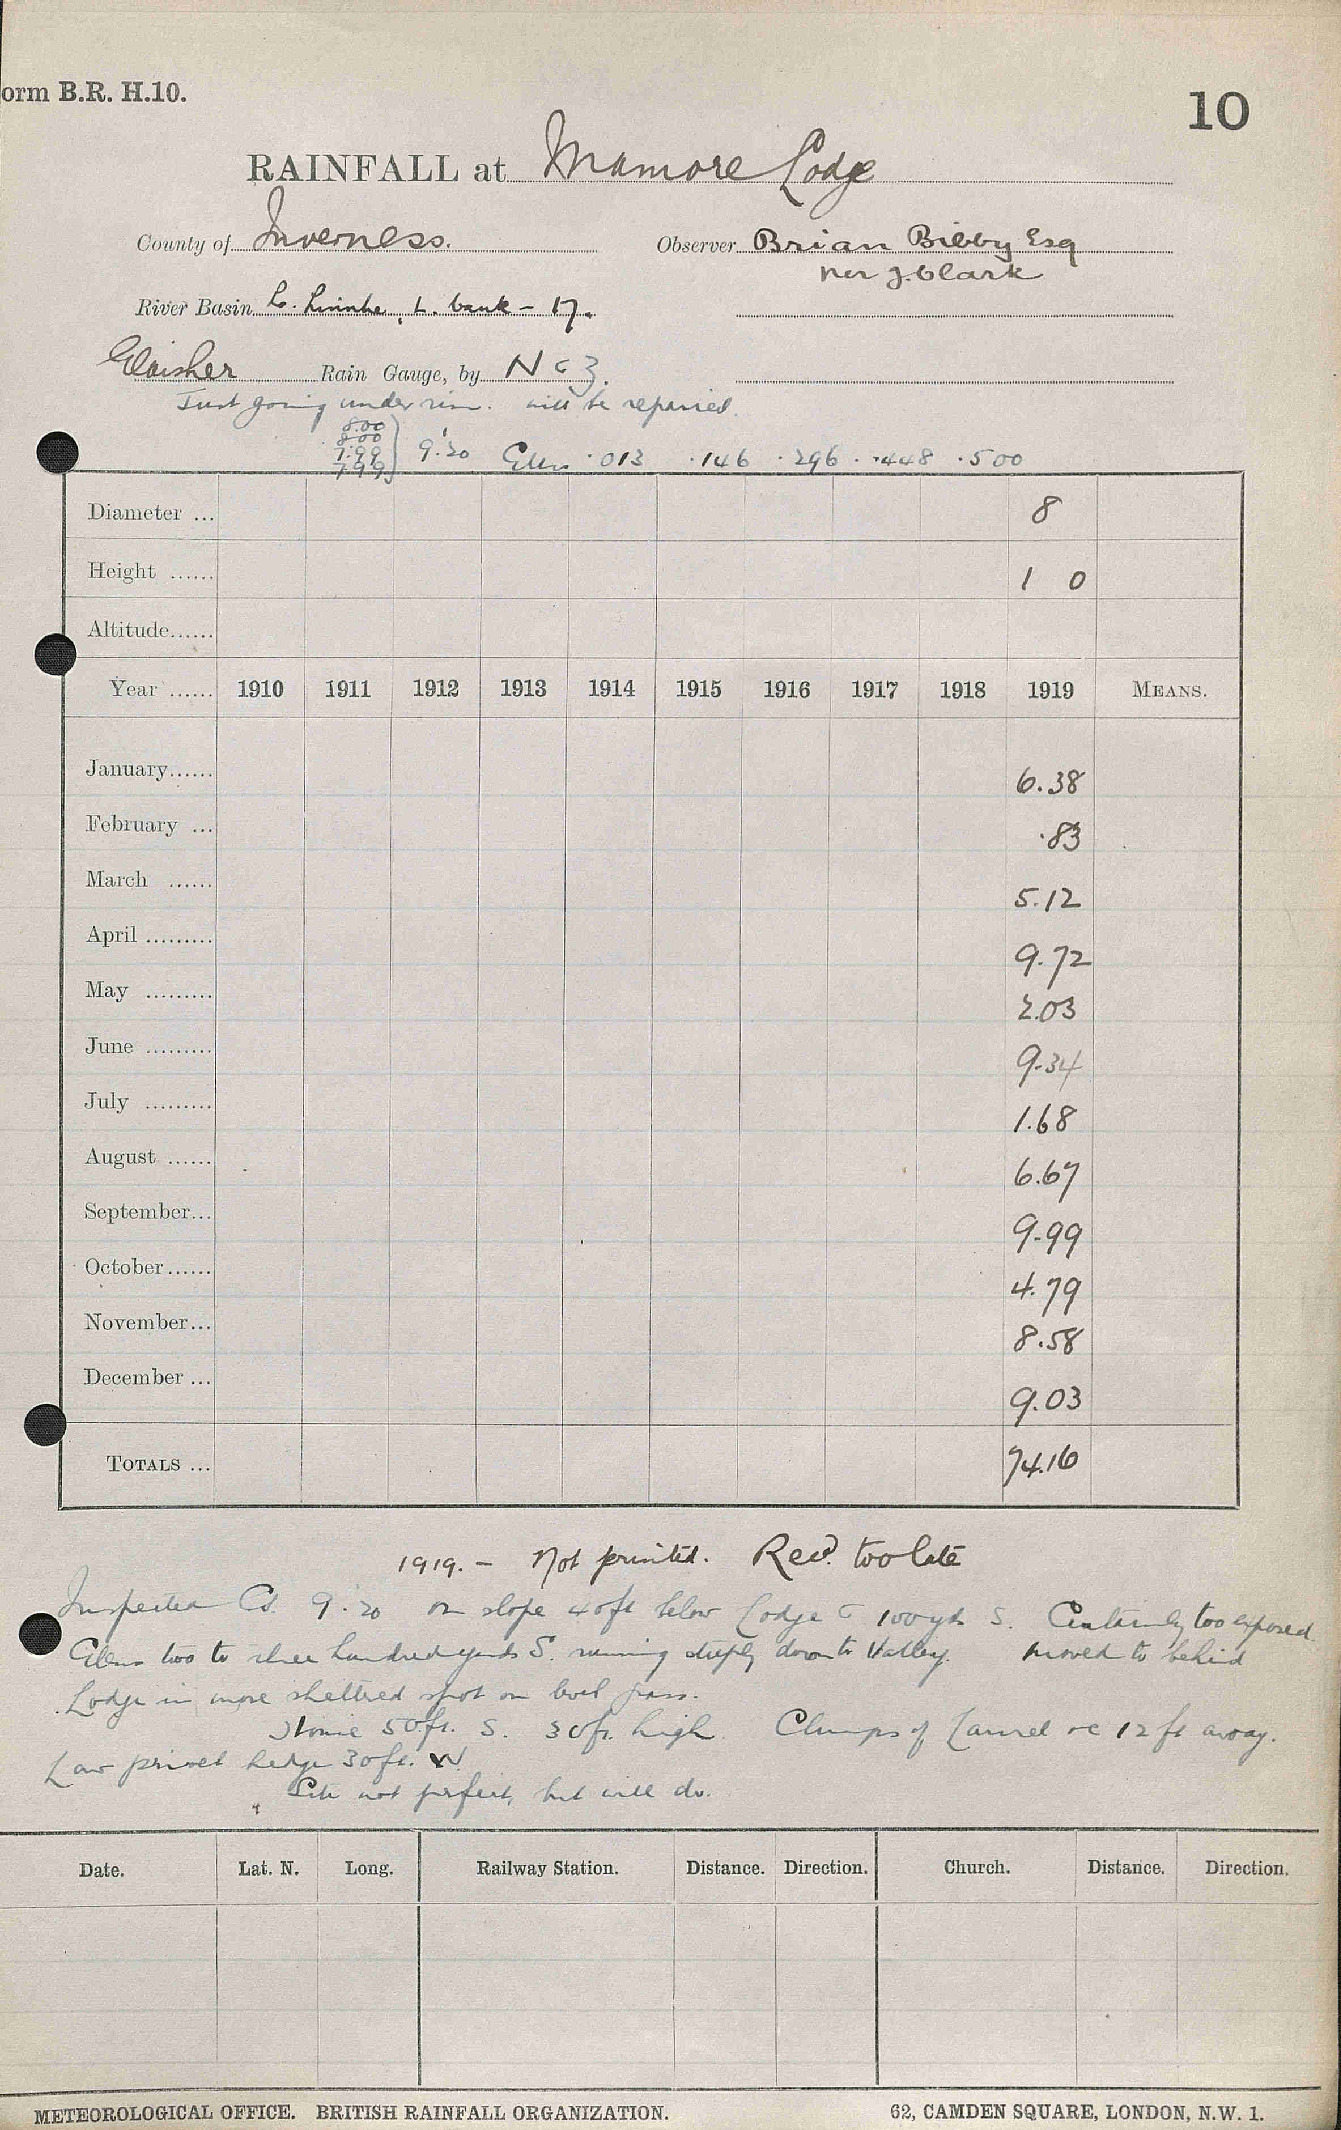 orm B.R. H.10.
10
RAINFALL at Mamore Lodge
County of Inverness. Observer Brian Bibby Esq
per J. Clark
River Basin L. Linnhe, L. bank - 17.
Glaisher Rain Gauge, by N & Z.
Just going under rim. will be repaired.
8.00
8.00
7.99
7.99 } 9.'20 Glass .013 .146 .296 .448 .500
Diameter ... 8
Height ...... 1 0
Altitude......
Year ...... 1910 1911 1912 1913 1914 1915 1916 1917 1918 1919 MEANS.
January...... 6.38
February ... .83
March ...... 5.12
April ......... 9.72
May ......... 2.03
June ......... 9.34
July ......... 1.68
August ...... 6.67
September... 9.99
October...... 4.79
November... 8.58
December ... 9.03
TOTALS ... 74.16
1919. - Not printed. Recd. too late
Inspected 9.'20 on slope 40ft below Lodge & 100 yds S. Certainly too exposed
Glens two to three hundred yards S. running steeply down to Valley. Moved to behind
Lodge in more sheltered spot on level grass.
House 50ft. S. 30ft. high. Clumps of Laurel 12 ft away.
Low privet hedge 30ft. W.
Site not perfect, but will do.
Date. Lat. N. Long. Railway Station. Distance. Direction. Church. Distance. Direction.
METEOROLOGICAL OFFICE. BRITISH RAINFALL ORGANIZATION. 62, CAMDEN SQUARE, LONDON, N.W. 1.